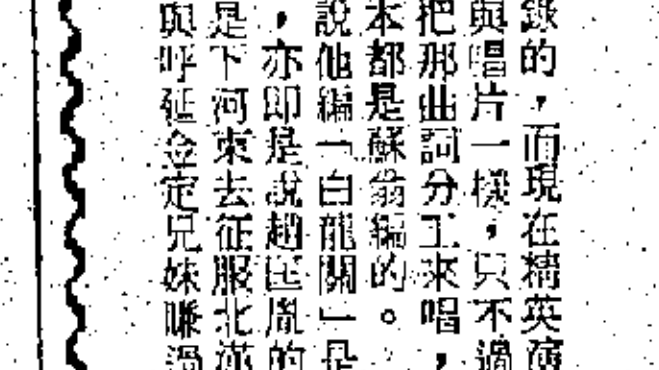 錄的，而現在精英
與唱片一樣，只不過
把那曲詞分工來唱，
本都是蘇翁編的。
說他編「白龍關」是
，亦即是說趙匡胤的
是下河東去征服北漢
與呼延金定兄妹賺過